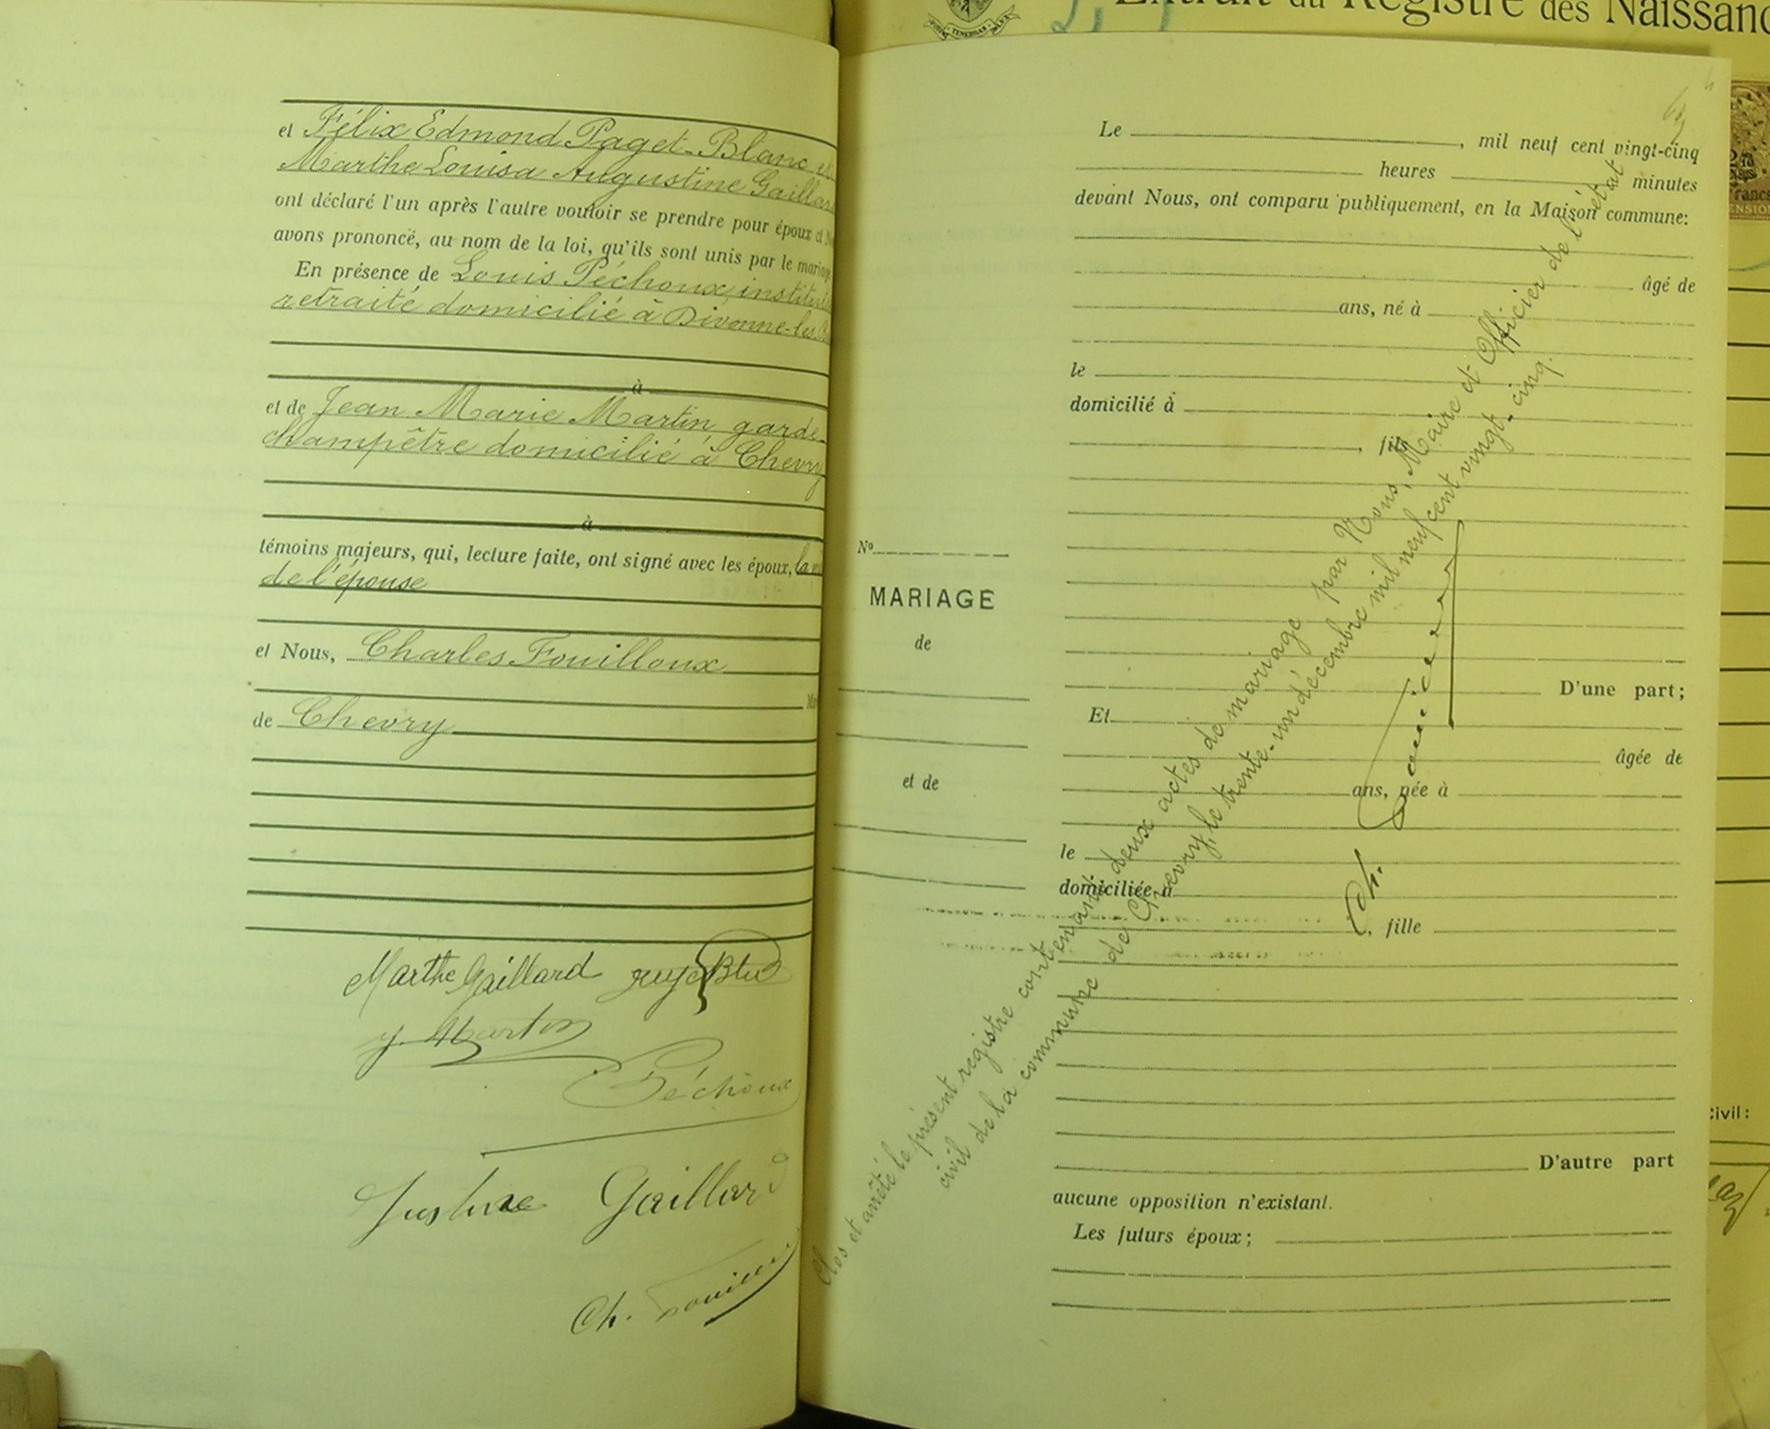 et Félix Edmond Paget-Blanc et
Marthe Louisa Augustine Gaillard
ont déclaré l'un après l'autre vouloir se prendre pour époux et
avons prononcé, au nom de la loi, qu'ils sont unis par le mariage
En présence de Louis Péchoux, institu
retraité domicilié à Divonne-les
à
et de Jean Marie Martin garde-
champêtre domicilié à Chevry
à
témoins majeurs, qui, lecture faite, ont signé avec les époux, la
de l'épouse
et Nous, Charles Fouilloux
de Chevry
Marthe Gaillard
J. Martin
Péchoux
Justine Gaillard
Ch. Fouilloux
Extrait du Registre des Naissanc
Le , mil neuf cent vingt-cinq
heures minutes
devant Nous, ont comparu publiquement, en la Maison commune:
âgé de
ans, né à
le
domicilié à
, fils
No
MARIAGE
de
et de
D'une part;
Et
âgée de
ans, née à
le
domiciliée à
, fille
D'autre part
aucune opposition n'existant.
Les futurs époux;
Clos et arrêté le présent registre contenant deux actes de mariage par Nous, Maire et Officier de l'état
civil de la commune de Chevry, le trente-un décembre mil neuf cent vingt-cinq.
Ch. Fouilloux
civil: